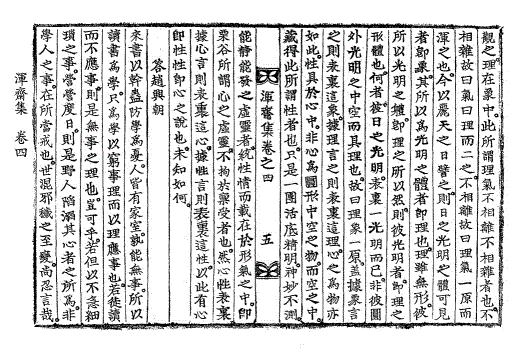 觀之理在象中此所謂理氣不相離不相雜者也不
相雜故曰氣曰理而二之不相離故曰理氣一原而
渾之也今以麗天之日譬之則日之光明之體可見
者卽象其所以爲光明之體者卽理也理雖無形彼
所以光明之體卽理之所以然則彼光明者卽理之
形體也何者彼日之光明表裏一光明而已非彼圓
外光明之中空而具理也故曰理象一原蓋據象言
之則表裏這象據理言之則表裏這理心之爲物亦
如此性具於心中非心爲圓形中空之物而空之中
藏得此所謂性者也只是一團活底精明神妙不測
渾齋集卷之四
五
能靜能發之虛靈者統性情而載在於形氣之中卽
栗谷所謂心之虛靈不拘於稟受者也然心性表裏
據心言則表裏這心據性言則表裏這性以此有心
卽性性卽心之說也未知如何
答趙興朝
來書以幹蠱妨學爲憂人皆有家室孰能無事所以
讀書爲學只爲學以窮事理而以理應事也若徒讀
而不應事則是無事之理也豈可乎若但以不急細
瑣之事營營度日則是野人陷溺其心者之所爲非
學人之事在所當戒也世混邪穢之至變尚忍言哉
渾齋集 卷四